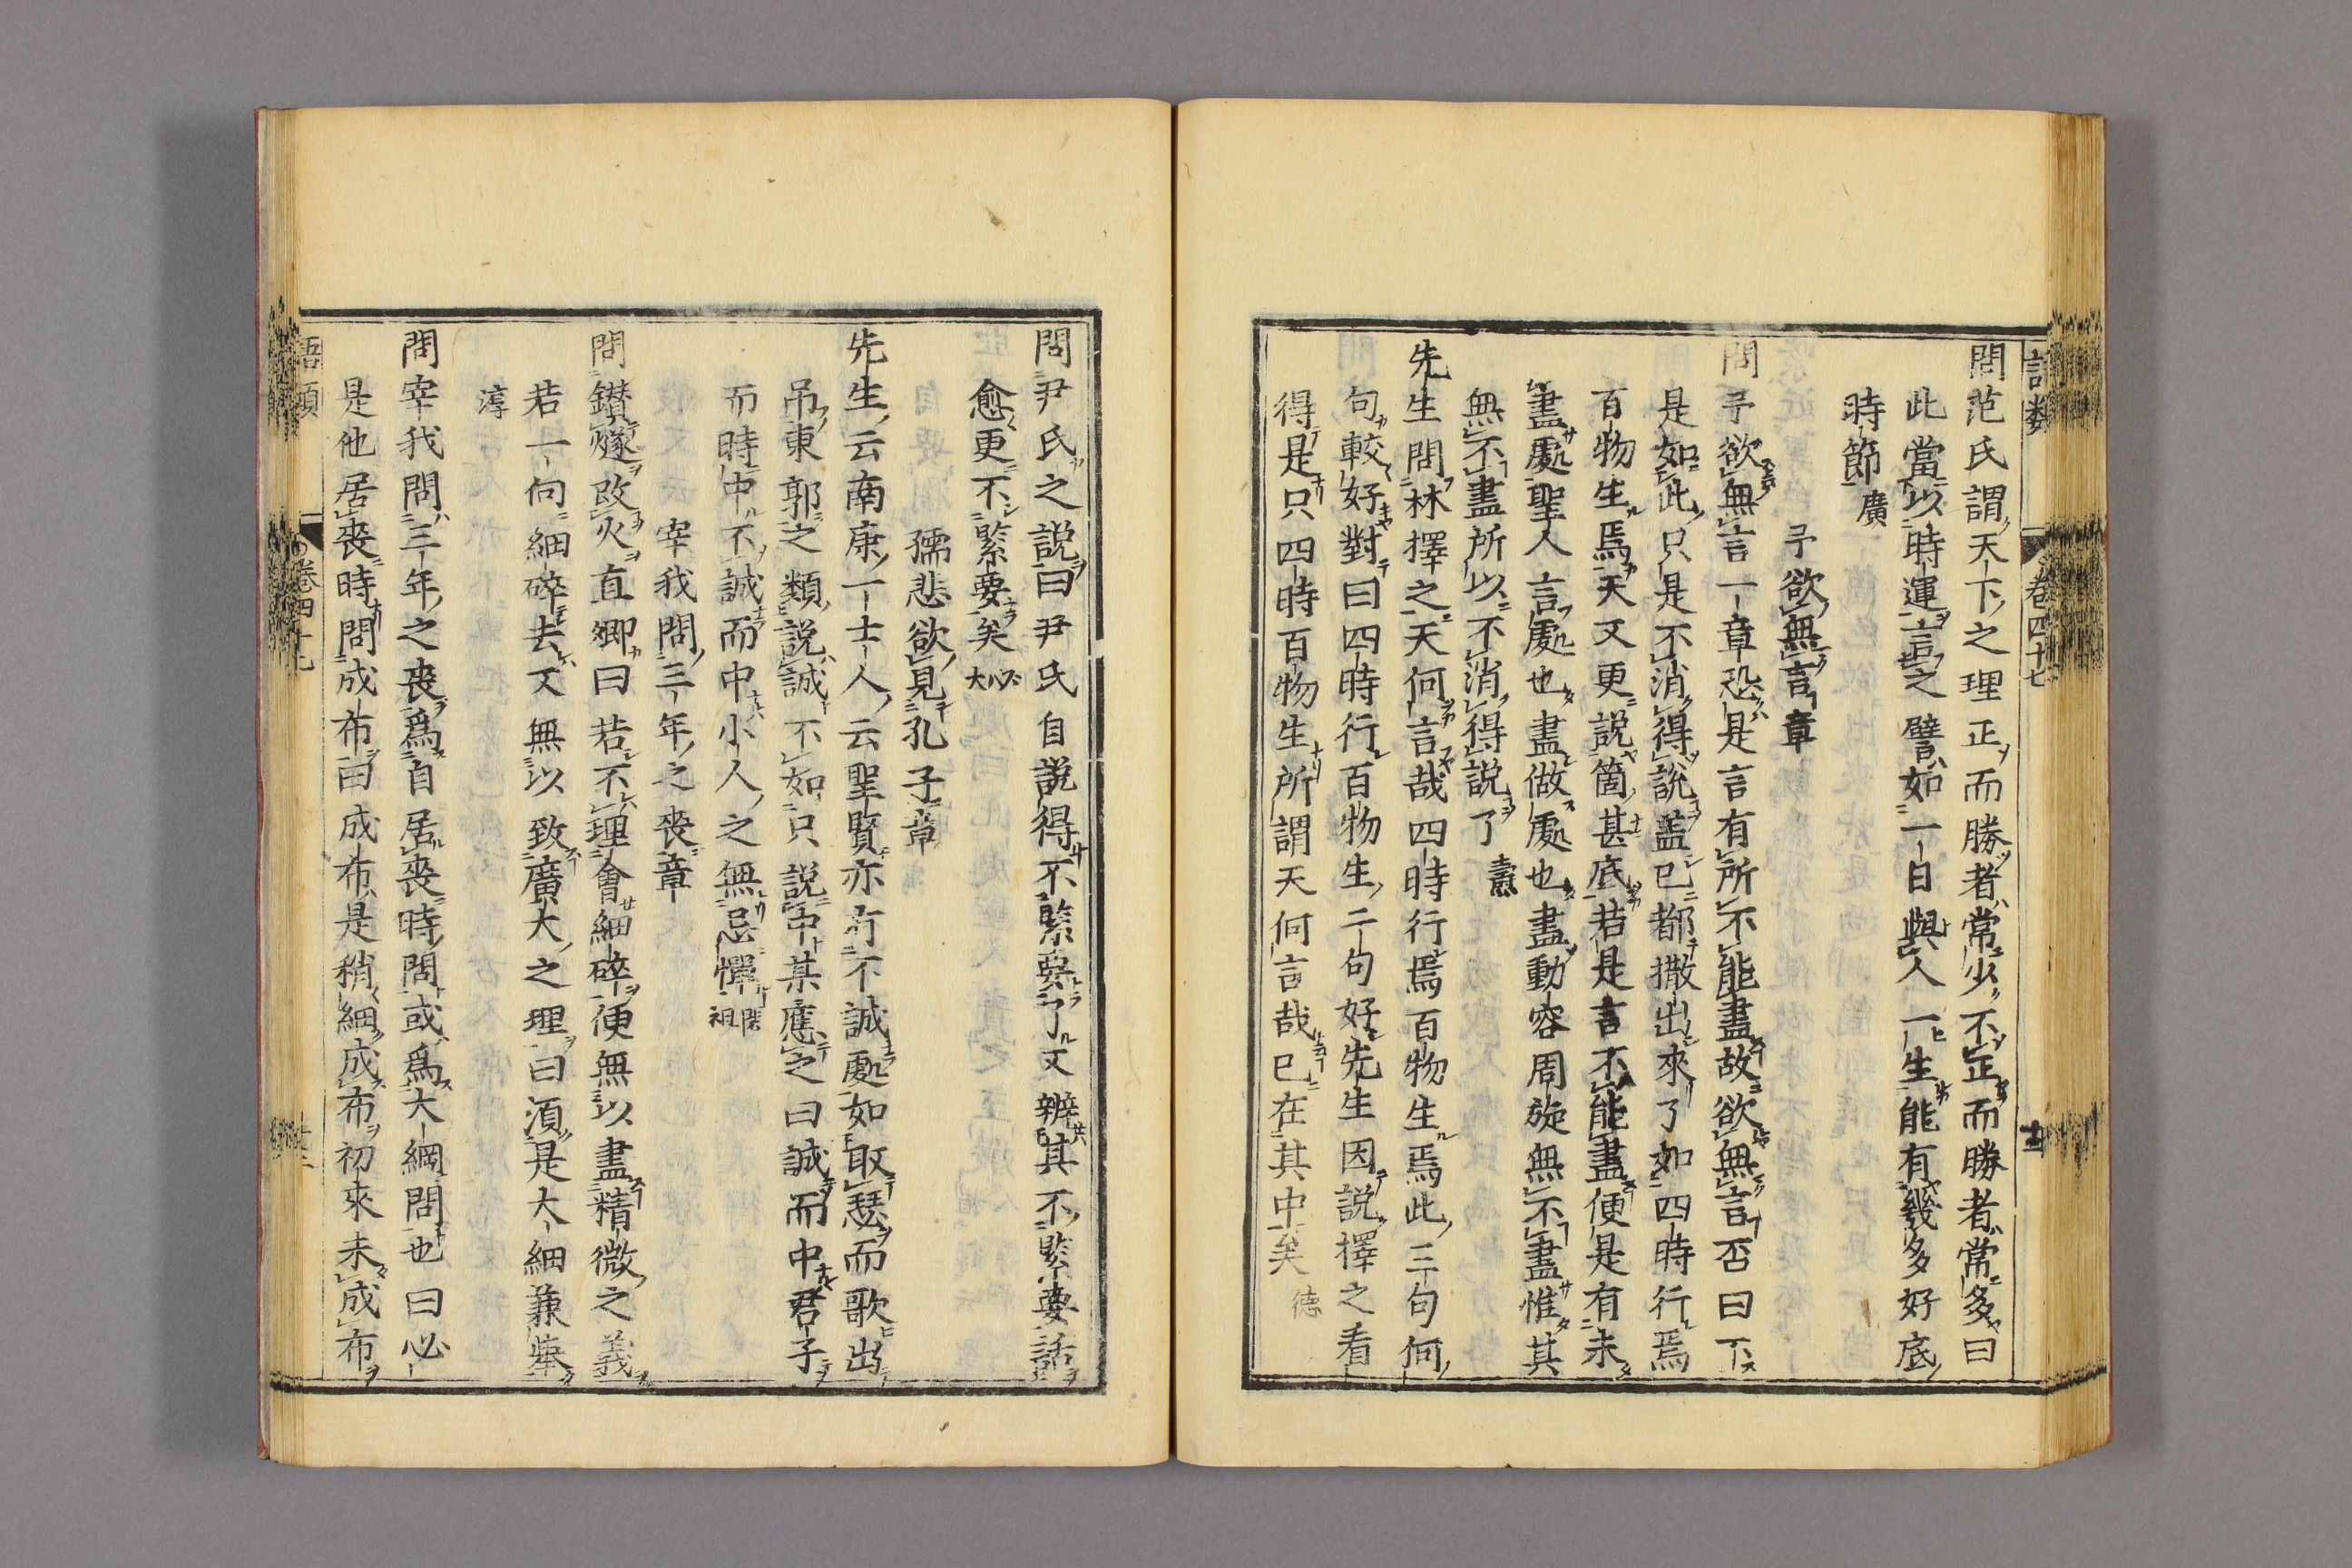 問范氏謂天下之理正而勝者常少不正而勝者常多曰
此當以時運言之譬如一日與人一生能有幾多好底
時節 廣
予欲無言章
問予欲無言一章恐是言有所不能盡故欲無言否曰不
是如此只是不消得說蓋已都撒出來了如四時行焉
百物生焉天又更說箇甚底若是言不能盡便是有未
盡處聖人言處也盡做處也盡動容周旋無不盡惟其
無不盡所以不消得説了 燾
先生問林擇之天何言哉四時行焉百物生焉此三句何
句較好對曰四時行百物生二句好先生因説擇之看
得是只四時百物生所謂天何言哉已在其中矣 德
問尹氏之説曰尹氏自説得不緊要了又辨其不緊要話
愈更不緊要矣 必大
孺悲欲見孔子章
先生云南康一士人云聖賢亦有不誠處如取瑟而歌出
吊東郭之類説誠不如只説中某應之曰誠而中君子
而時中不誠而中小人之無忌憚 閎祖
宰我問三年之喪章
問鑚燧改火直卿曰若不理會細碎便無以盡精微之義
若一向細碎去又無以致廣大之理曰湏是大細兼舉
淳
問宰我問三年之喪爲自居喪時問或爲大綱問也曰必
是他居喪時問成布曰成布是稍細成布初來未成布
語類 卷四十七